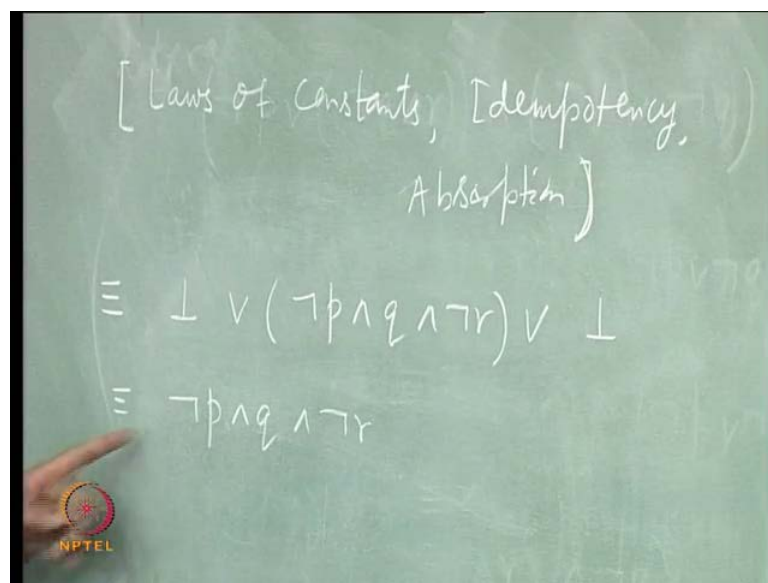 [Laws of Constants, Idempotency,
Absorption]
≡ ⊥ ∨ (¬p ∧ q ∧ ¬r) ∨ ⊥
≡ ¬p ∧ q ∧ ¬r
NPTEL